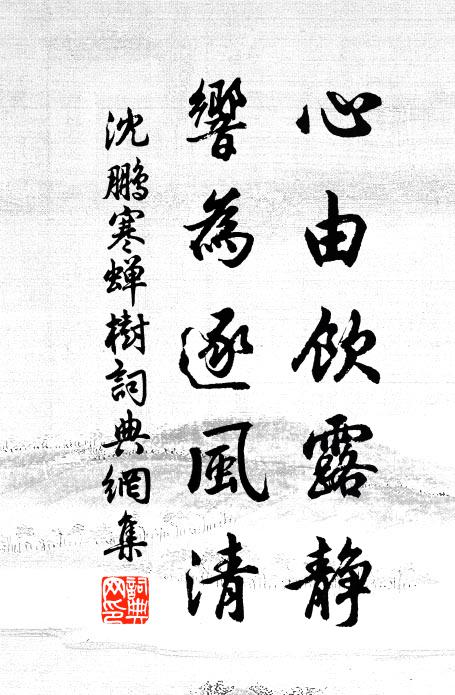 心由飲露静
響為逐風清
沈鵬寒蝉樹詞典網集
詞典
网印